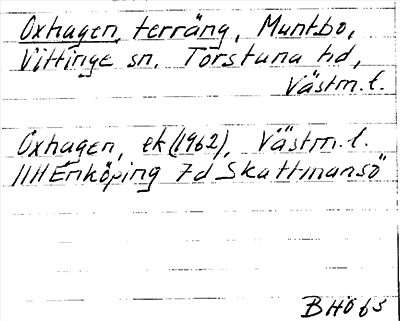 Oxhagen, terräng, Muntbo,
Vittinge sn. Torstuna hd,
Västm.l.
Oxhagen, ek (1962), Västm.l.
11H Enköping 7d Skattmansö
BHÖ 63